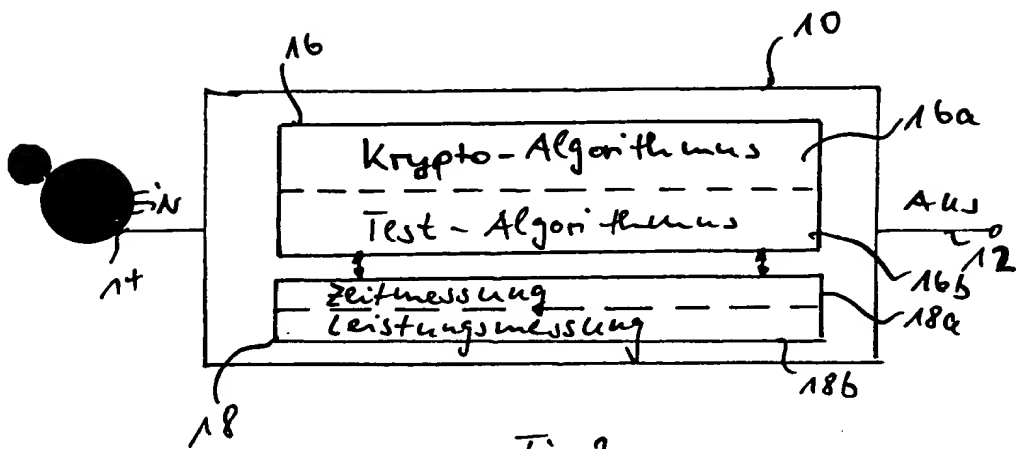 10
16
16a
Krypto-Algorithmus
Ein
Test-Algorithmus
Aus
12
14
16b
Zeitmessung
18a
Leistungsmessung
18b
18